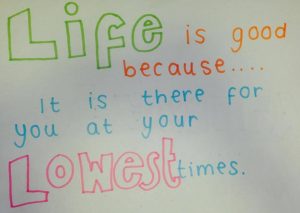 Life is good
because....
It is there for
you at your
Lowest times.